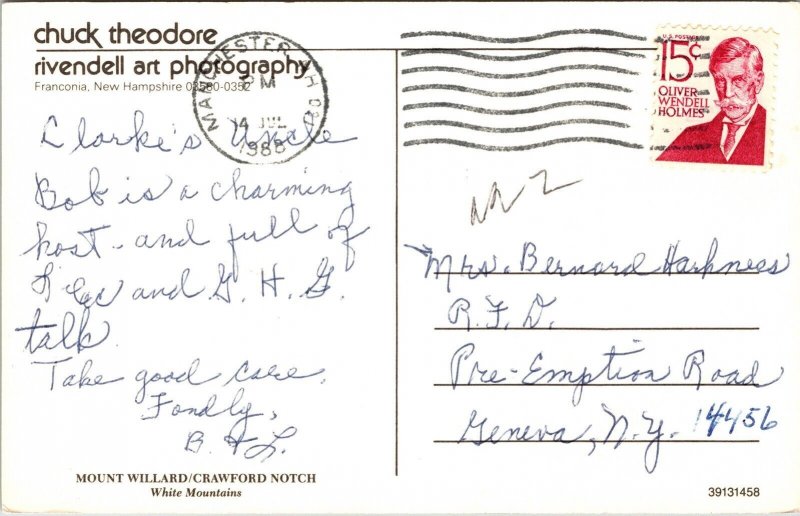 chuck theodore
rivendell art photography
Franconia, New Hampshire 03580-0352
MANCHESTER NH
PM
14 JUL
1988
U.S. POSTAGE
15¢
OLIVER
WENDELL
HOLMES
Clarke's Uncle
Bob is a charming
host - and full of
and G. H. G.
talk.
Take good care.
Fondly,
B. & L.
Mrs. Bernard Harkness
R.F.D.
Pre-Emption Road
Geneva, N.Y. 14456
MOUNT WILLARD/CRAWFORD NOTCH
White Mountains
39131458